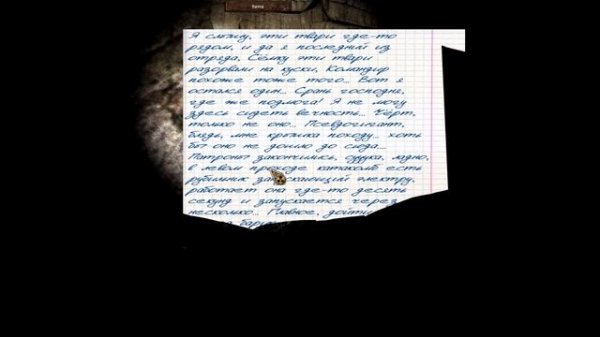 Я слышу, эти твари где-то
рядом, и да я последний из
отряда, Сёмку эти твари
разорвали на куски, Командир
похоже тоже того... Вот я
остался один... Срань господня,
где же подмога! Я не могу
здесь сидеть вечность... Чёрт,
только не оно... Псевдогигант,
блядь, мне крышка походу... хоть
бы оно не дошло до сюда...
Патроны закончились, ладно,
в левом проходе катакомб есть
рубильник запускающий электру,
работает она где-то десять
секунд и запускается через
несколько... Главное, дойти